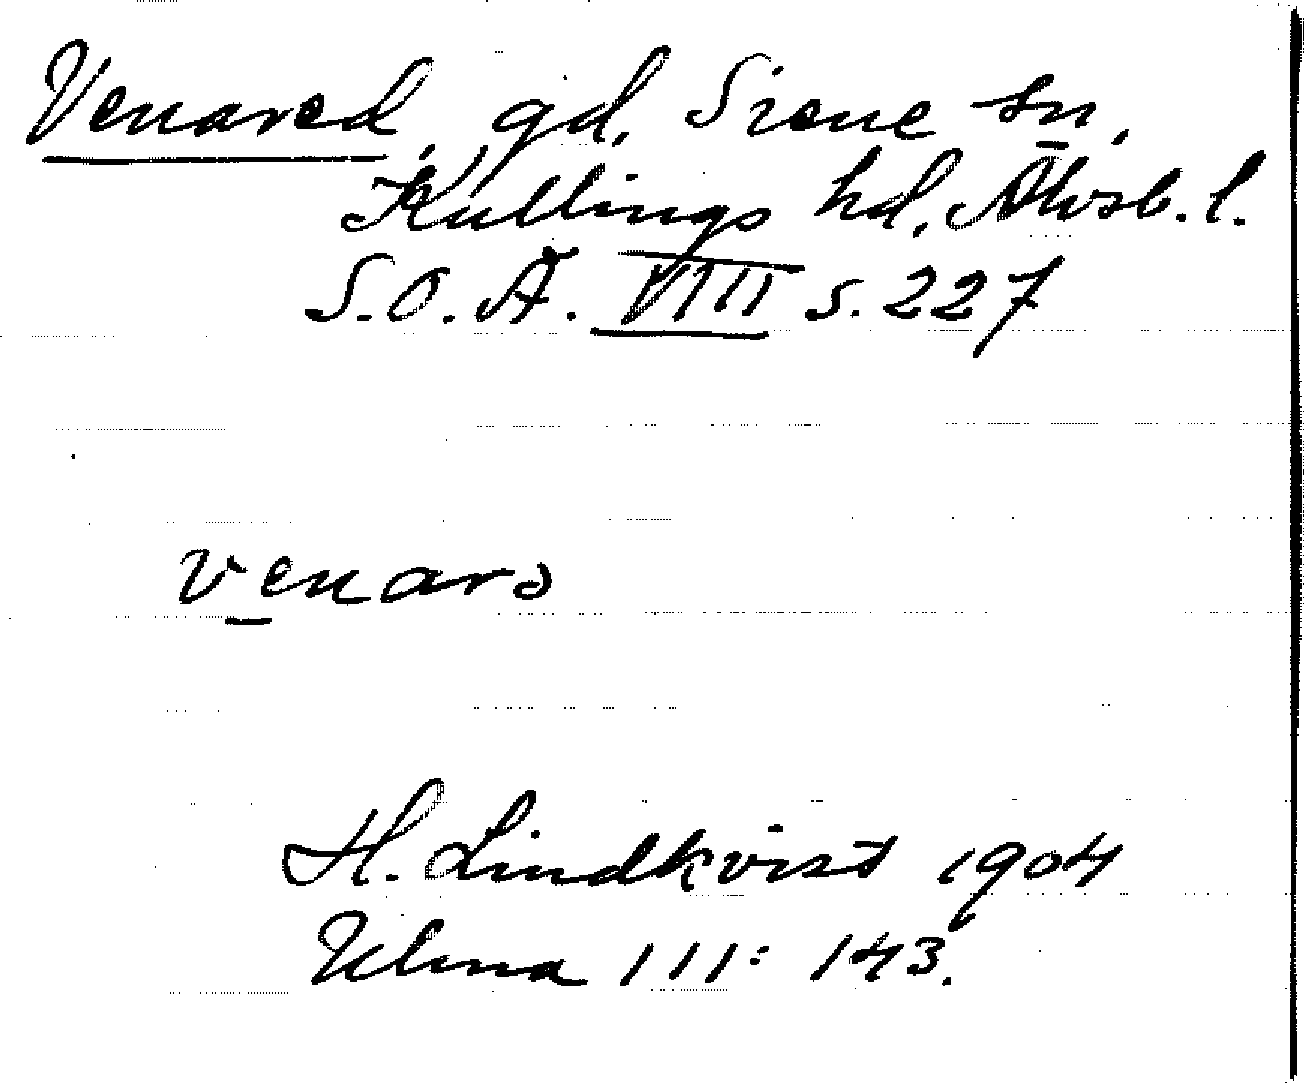 Venared, gd, Siene sn,
Kullings hd, Älvsb. l.
S.O.Ä. VIII s. 227
venarə
H. Lindkvist 1904
Ulma 111: 143.